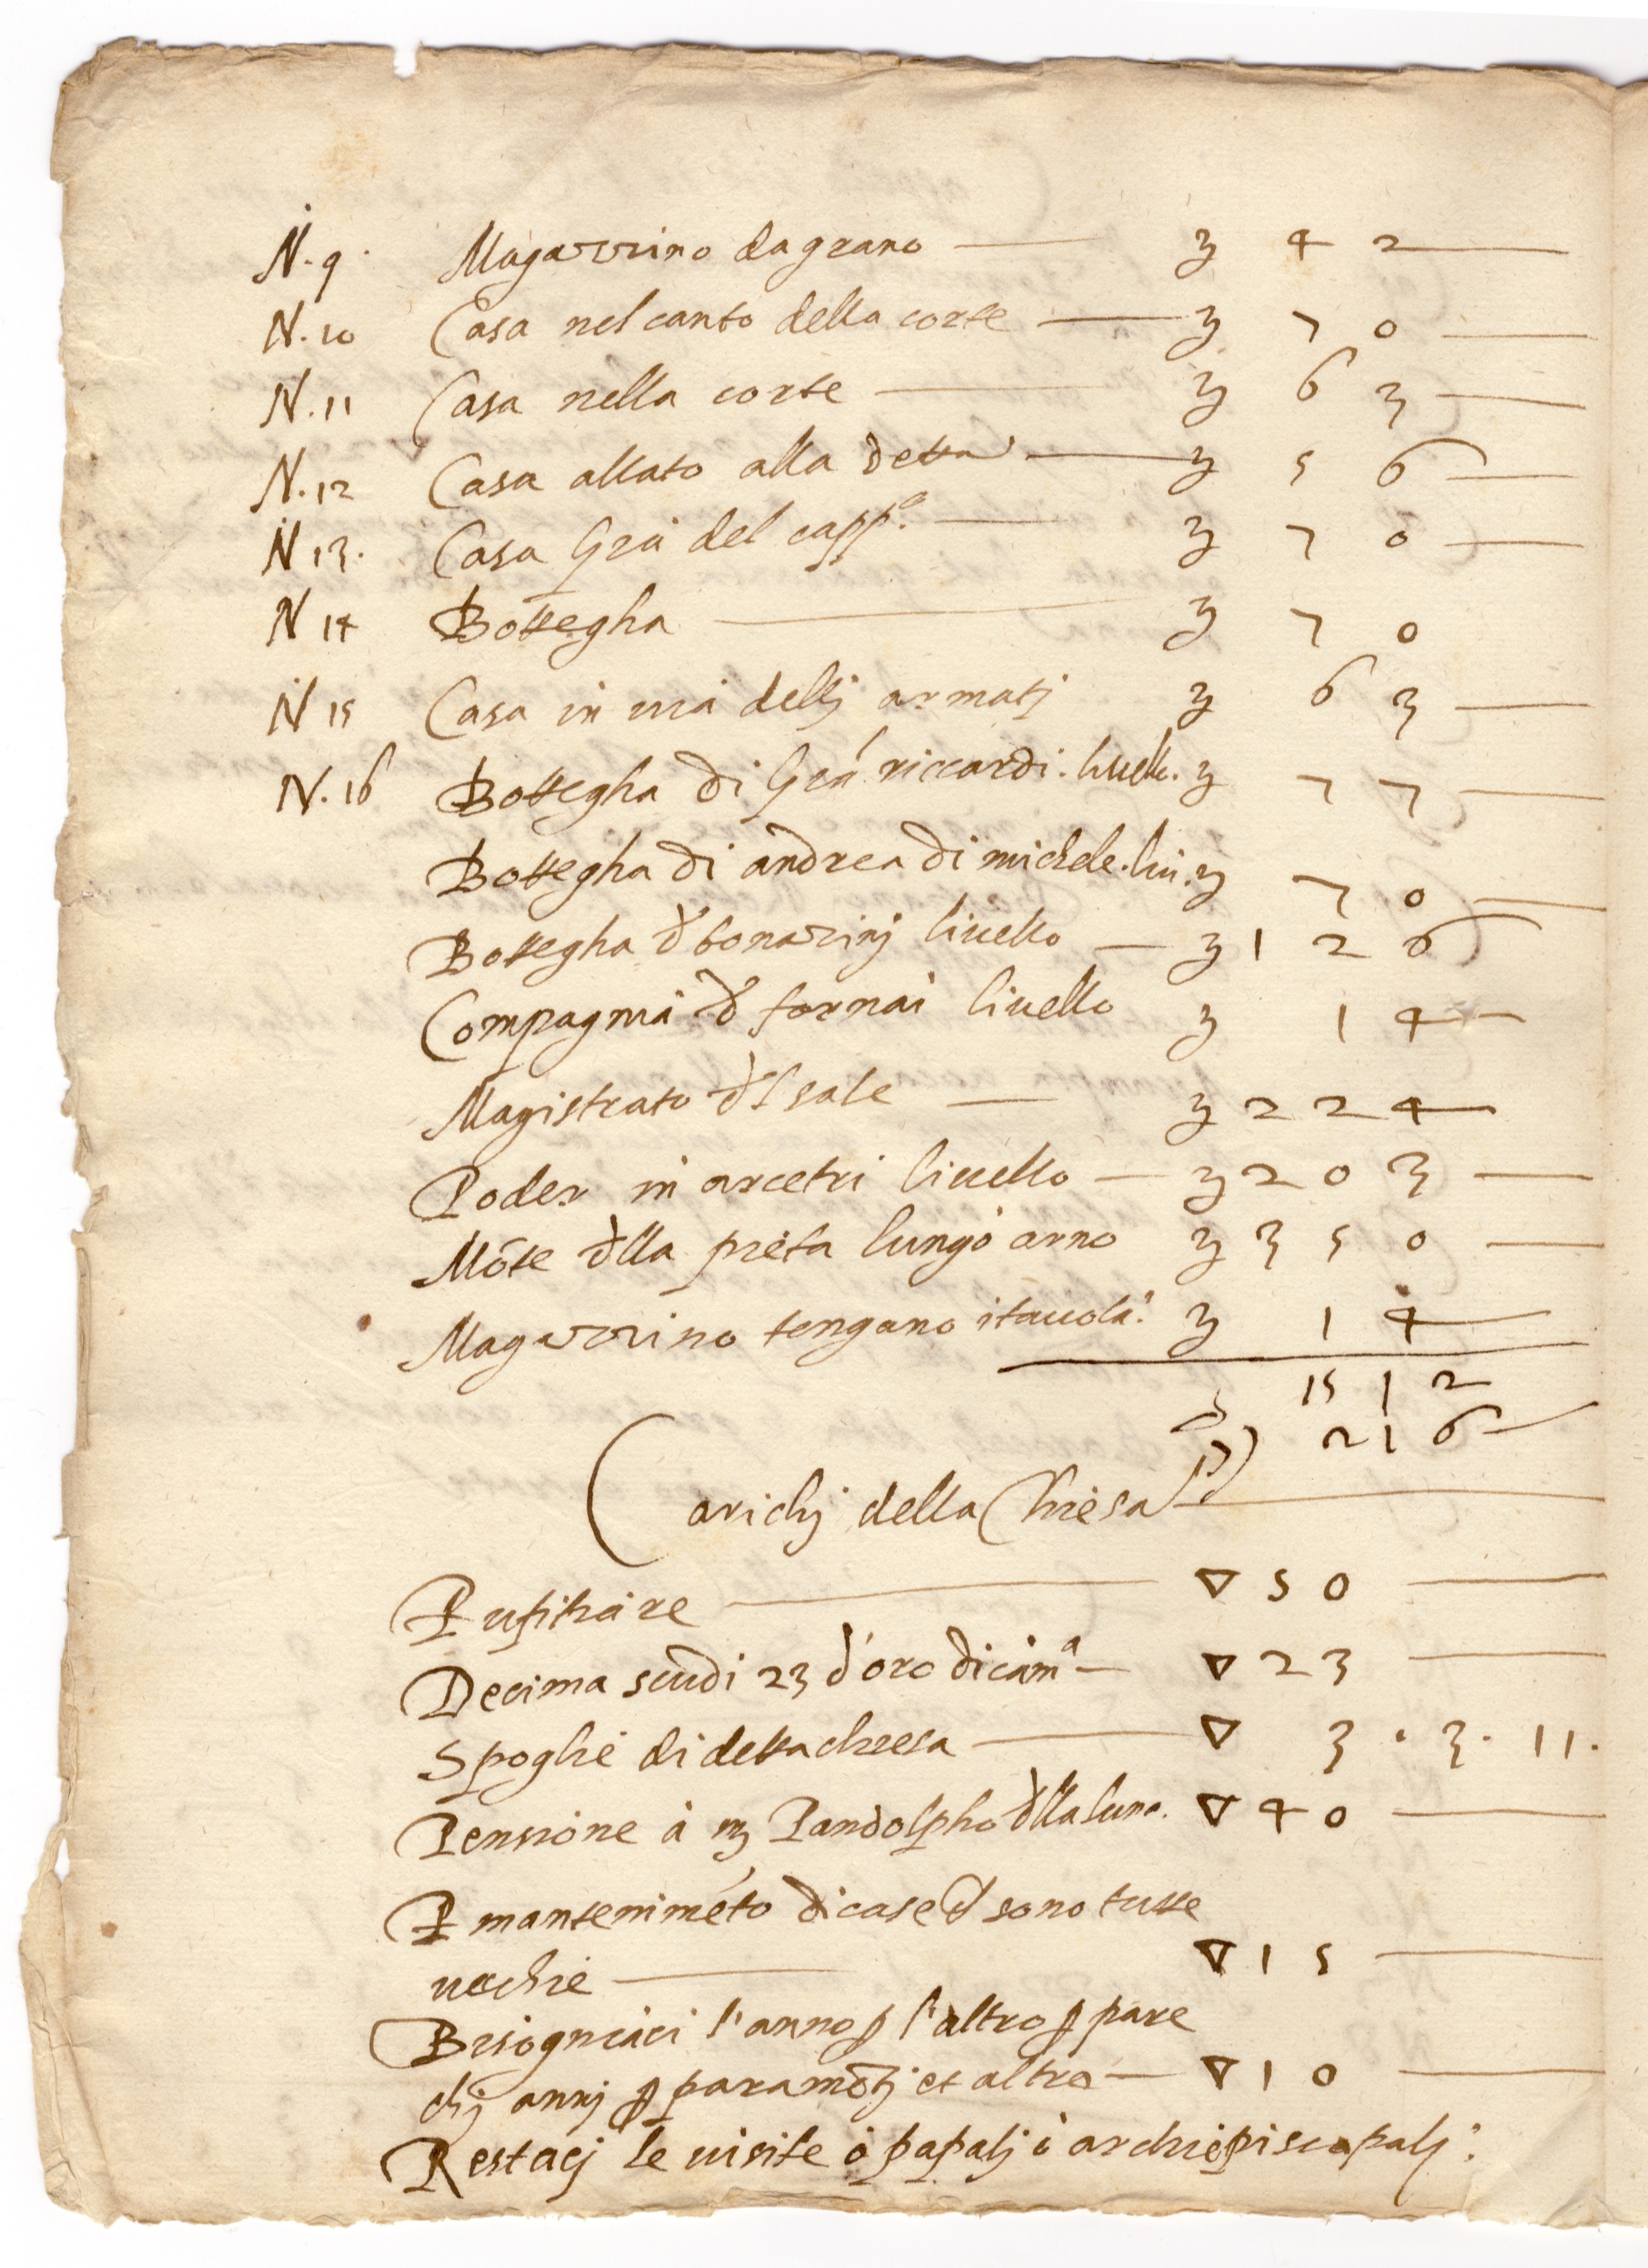 N. 9. Magazzino da grano — ʒ 4 2 —
N. 10 Casa nel canto della corte — ʒ 7 0 —
N. 11 Casa nella corte — ʒ 6 3 —
N. 12 Casa allato alla detta — ʒ 5 6 —
N 13. Casa Gia del capp.o — ʒ 7 0 —
N 14 Bottegha — ʒ 7 0
N 15 Casa in via dellj armatj ʒ 6 3 —
N. 16 Bottegha di riccardi. liuell. ʒ 7 7 —
Bottegha di andrea di michele. liu. ʒ 7 0 —
Bottegha d bonazinj liuello — ʒ 1 2 6
Compagnia d fornai liuello ʒ 1 4 —
Magistrato dl sale — ʒ 2 2 4 —
Poder in arcetri liuello — ʒ 2 0 3 —
Mōte dlla pieta lungo arno ʒ 3 5 0 —
Magazzino tengano itauola: ʒ 1 4 —
15 1 2
2 1 6 —
Carichj della Chiesa —
P ufitiare — ▽ 5 0 —
Decima scudi 23 d'oro di camª — ▽ 2 3 —
Spoglie di detta chiesa — ▽ 3 . 3 . 11.
Pensione à m Pandolpho dlla luna. ▽ 4 0 —
P mantenimēto di case ch sono tutte
uechie — ▽ 1 5 —
Bisogniaci l'anno p l'altro p pare
chj annj p paramētj et altro — ▽ 1 0 —
Restacj le uisite ò papalj ò archiepiscopalj: